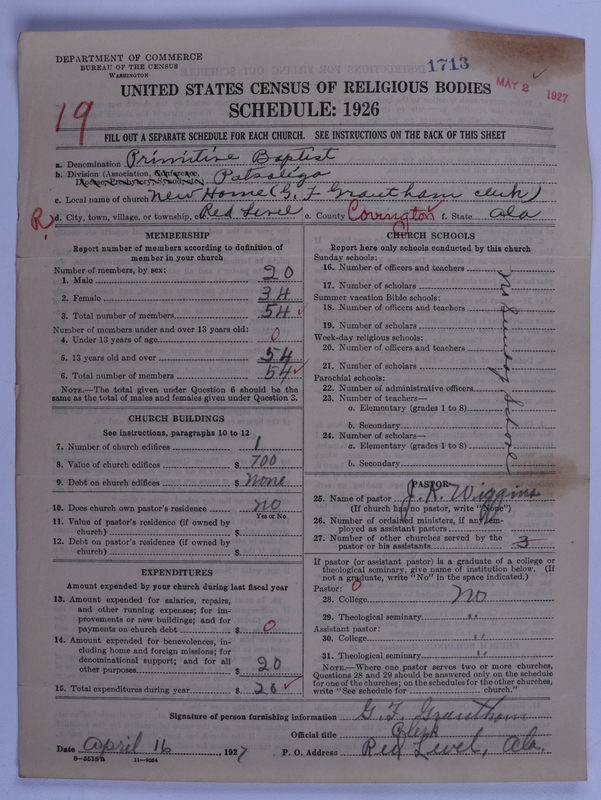 DEPARTMENT OF COMMERCE
BUREAU OF THE CENSUS
WASHINGTON
1713
MAY 2 1927
UNITED STATES CENSUS OF RELIGIOUS BODIES
SCHEDULE: 1926
19
FILL OUT A SEPARATE SCHEDULE FOR EACH CHURCH. SEE INSTRUCTIONS ON THE BACK OF THIS SHEET
a. Denomination Primitive Baptist
b. Division (Association, Conference, Patsaliga
Diocese, Presbytery, Synod, etc.)
c. Local name of church New Home (G. F. Grantham clerk)
R. d. City, town, village, or township, etc. Red Level e. County Covington f. State Ala
MEMBERSHIP
Report number of members according to definition of
member in your church
Number of members, by sex:
1. Male 20
2. Female 34
3. Total number of members 54
Number of members under and over 13 years old:
4. Under 13 years of age 0
5. 13 years old and over 54
6. Total number of members 54
NOTE.—The total given under Question 6 should be the
same as the total of males and females given under Question 3.
CHURCH BUILDINGS
See instructions, paragraphs 10 to 12
7. Number of church edifices 1
8. Value of church edifices $ 700
9. Debt on church edifices $ None
10. Does church own pastor's residence no
Yes or No
11. Value of pastor's residence (if owned by
church) $
12. Debt on pastor's residence (if owned by
church) $
EXPENDITURES
Amount expended by your church during last fiscal year
13. Amount expended for salaries, repairs,
and other running expenses; for im-
provements or new buildings; and for
payments on church debt $ 0
14. Amount expended for benevolences, in-
cluding home and foreign missions; for
denominational support; and for all
other purposes $ 20
15. Total expenditures during year $ 20
CHURCH SCHOOLS
Report here only schools conducted by this church
Sunday schools:
16. Number of officers and teachers
17. Number of scholars
Summer vacation Bible schools:
18. Number of officers and teachers
19. Number of scholars
Week-day religious schools:
20. Number of officers and teachers
21. Number of scholars
Parochial schools:
22. Number of administrative officers
23. Number of teachers—
a. Elementary (grades 1 to 8)
b. Secondary
24. Number of scholars—
a. Elementary (grades 1 to 8)
b. Secondary
no Sunday School
PASTOR
25. Name of pastor J. R. Wiggins
(If church has no pastor, write "None")
26. Number of ordained ministers, if any, em-
ployed as assistant pastors
27. Number of other churches served by the
pastor or his assistants 3
If pastor (or assistant pastor) is a graduate of a college or
theological seminary, give name of institution below. (If
not a graduate, write "No" in the space indicated.)
Pastor: 0
28. College no
29. Theological seminary "
Assistant pastor:
30. College "
31. Theological seminary "
NOTE.—Where one pastor serves two or more churches,
Questions 28 and 29 should be answered only on the schedule
for one of the churches; on the schedules for the other churches,
write "See schedule for church."
Signature of person furnishing information G. F. Grantham
Official title Clerk
Date April 16, 1927 P. O. Address Red Level, Ala.
8-5518a 11-9054